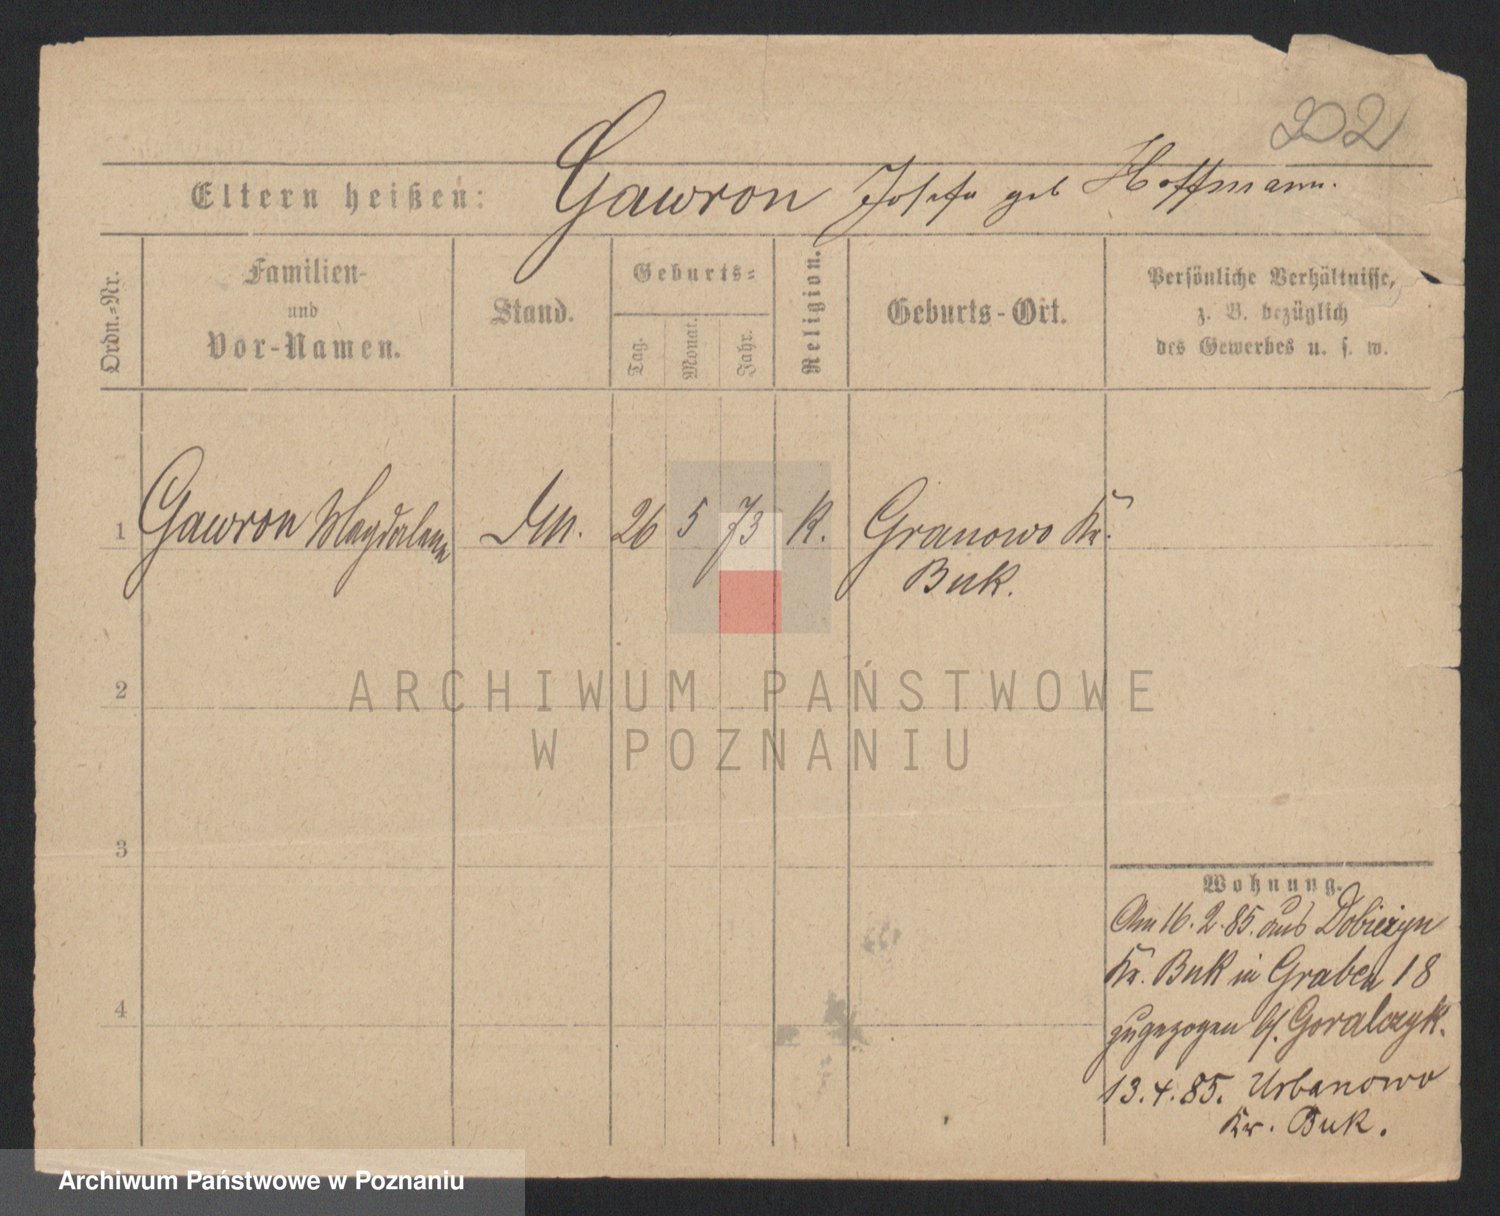 202
Eltern heißen: Gawron Josefa geb Hoffmann.
Ordn.-Nr.
Familien-
und
Vor-Namen.
Stand.
Geburts-
Tag.
Monat.
Jahr.
Religion.
Geburts-Ort.
Persönliche Verhältnisse,
z. B. bezüglich
des Gewerbes u. s. w.
1 Gawron Magdalena 26 5 73 K. Granowo Kr.
Buk.
2
ARCHIWUM PAŃSTWOWE
W POZNANIU
3
Wohnung.
Am 16. 2. 85. aus Dobieżyn
Kr. Buk in Graben 18
4
zugezogen b/. Goralczyk.
13. 4. 85. Urbanowo
Kr. Buk.
Archiwum Państwowe w Poznaniu